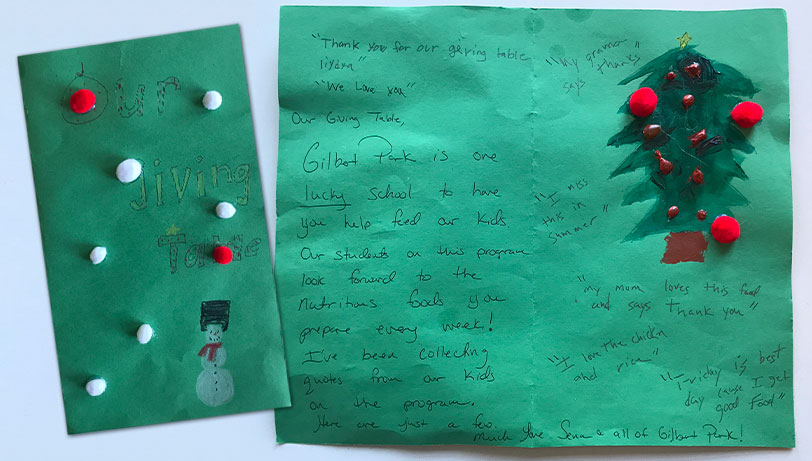 Our
giving
Table
"Thank you for our giving table
liydya"
"We Love you"
Our Giving Table,
Gilbert Park is one
lucky school to have
you help feed our kids.
Our students on this program
look forward to the
nutritious foods you
prepare every week!
I've been collecting
quotes from our kids
on the program.
Here are just a few.
"My grammer
says thanks"
"I miss
this in
summer"
"my mum loves this food
and says thank you"
"I love the chickn
and rice"
"Friday is best
day cause I get
good food"
Much love Sena & all of Gilbert Park!